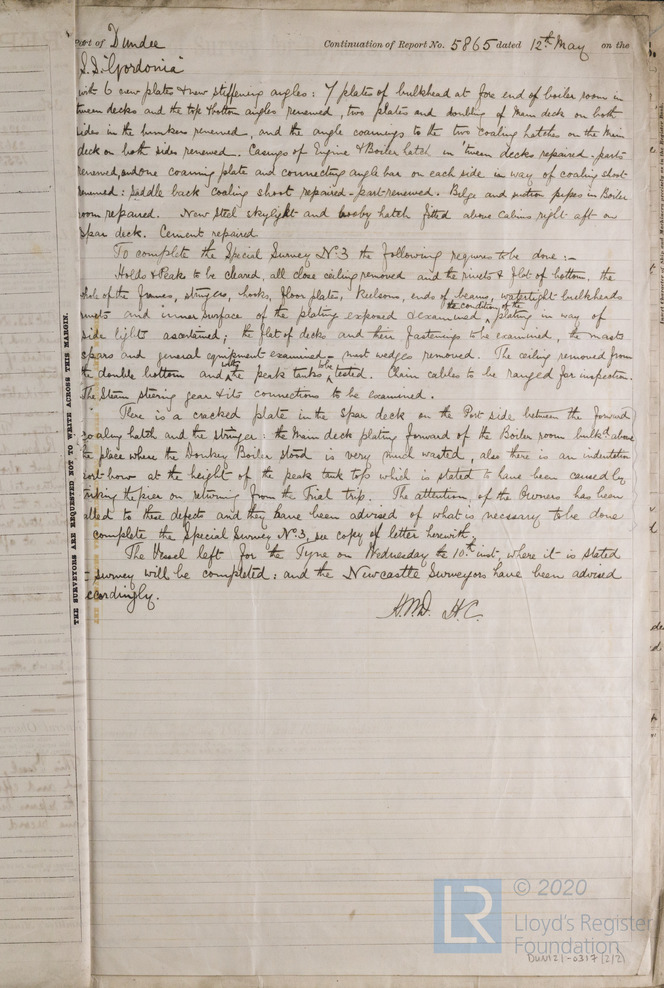 Port of Dundee Continuation of Report No. 5865 dated 12th May on the
S.S. "Gordonia"
with 6 new plates & new stiffening angles: 7 plates of bulkhead at fore end of boiler room in
tween decks and the top & bottom angles renewed, two plates and doubling of Main deck on both
sides in the bunkers renewed, and the angle coamings to the two coaling hatches on the Main
deck on both sides renewed. Casings of Engine & Boiler hatch in 'tween decks repaired & parts
renewed, and one coaming plate and connecting angle bar on each side in way of coaling shoot
renewed: saddle back coaling shoot repaired - part renewed. Bilge and suction pipes in Boiler
room repaired. New steel skylight and booby hatch fitted above cabins right aft on
spar deck. Cement repaired
To complete the Special Survey No 3 the following requires to be done:-
Holds & Peaks to be cleared, all close ceiling removed and the rivets & flat of bottom, the
state of the frames, stringers, hooks, floor plates, keelsons, ends of beams, watertight bulkheads
rivets and inner surface of the plating exposed & examined, the condition of the plating in way of
side lights ascertained; the flat of decks and their fastenings to be examined, the masts
spars and general equipment examined - mast wedges removed. The ceiling removed from
the double bottom and with the peak tanks to be tested. Chain cables to be ranged for inspection.
The Steam steering gear & its connections to be examined.
There is a cracked plate in the Spar deck on the Port side between the forward
coaling hatch and the stringer: the Main deck plating forward of the Boiler room bulkd above
the place where the Donkey Boiler stood is very much wasted, also there is an indentation
port bow at the height of the peak tank top which is stated to have been caused by
striking the pier on returning from the Trial trip. The attention of the Owners has been
called to these defects and they have been advised of what is necessary to be done
complete the Special Survey No 3, see copy of letter herewith.
The Vessel left for the Tyne on Wednesday the 10th inst, where it is stated
survey will be completed: and the Newcastle Surveyors have been advised
accordingly.
H.M.D. H.C.
THE SURVEYORS ARE REQUESTED NOT TO WRITE ACROSS THIS MARGIN.
LR © 2020
Lloyd's Register
Foundation
DUN121-0317 (2/2)